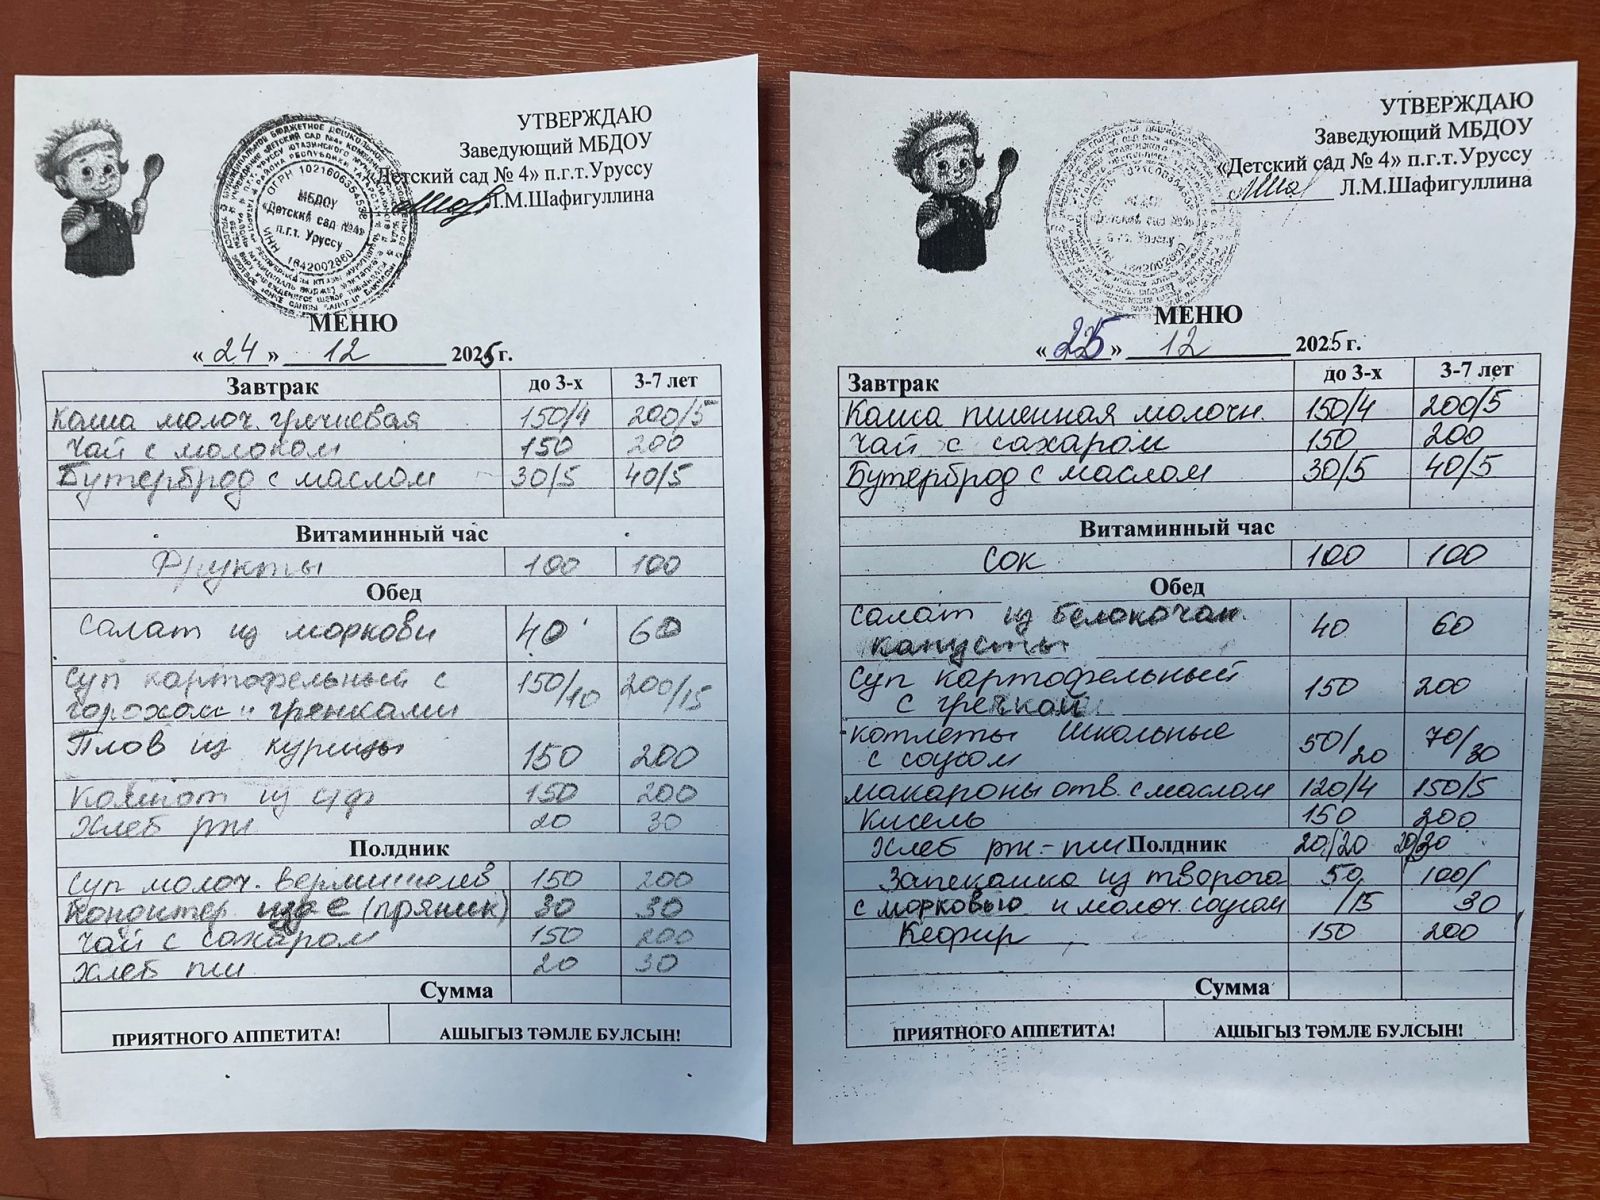 УТВЕРЖДАЮ
Заведующий МБДОУ
«Детский сад № 4» п.г.т.Уруссу
Л.М.Шафигуллина
ОГРН 1021606354538
МБДОУ
«Детский сад №4»
п.г.т. Уруссу
ИНН 1642002860
МЕНЮ
«24» 12 2025 г.
Завтрак до 3-х 3-7 лет
Каша молоч. гречневая 150/4 200/5
Чай с молоком 150 200
Бутерброд с маслом 30/5 40/5
Витаминный час
Фрукты 100 100
Обед
Салат из моркови 40 60
Суп картофельный с 150/10 200/15
горохом и гренками
Плов из курицы 150 200
Компот из с/ф 150 200
Хлеб рж. 20 30
Полдник
Суп молоч. вермишелев 150 200
Кондитер. изде (пряник) 30 30
Чай с сахаром 150 200
Хлеб пш 20 30
Сумма
ПРИЯТНОГО АППЕТИТА! АШЫГЫЗ ТӘМЛЕ БУЛСЫН!
УТВЕРЖДАЮ
Заведующий МБДОУ
«Детский сад № 4» п.г.т.Уруссу
Л.М.Шафигуллина
МЕНЮ
«25» 12 2025 г.
Завтрак до 3-х 3-7 лет
Каша пшенная молочн. 150/4 200/5
Чай с сахаром 150 200
Бутерброд с маслом 30/5 40/5
Витаминный час
Сок 100 100
Обед
Салат из белокочан. 40 60
капусты
Суп картофельный 150 200
с гречкой
Котлеты Школьные 50/20 70/30
с соусом
Макароны отв. с маслом 120/4 150/5
Кисель 150 200
Хлеб рж-пш 20/20 20/30
Полдник
Запеканка из творога 50/ 100/
с морковью и молоч. соусом /15 30
Кефир 150 200
Сумма
ПРИЯТНОГО АППЕТИТА! АШЫГЫЗ ТӘМЛЕ БУЛСЫН!